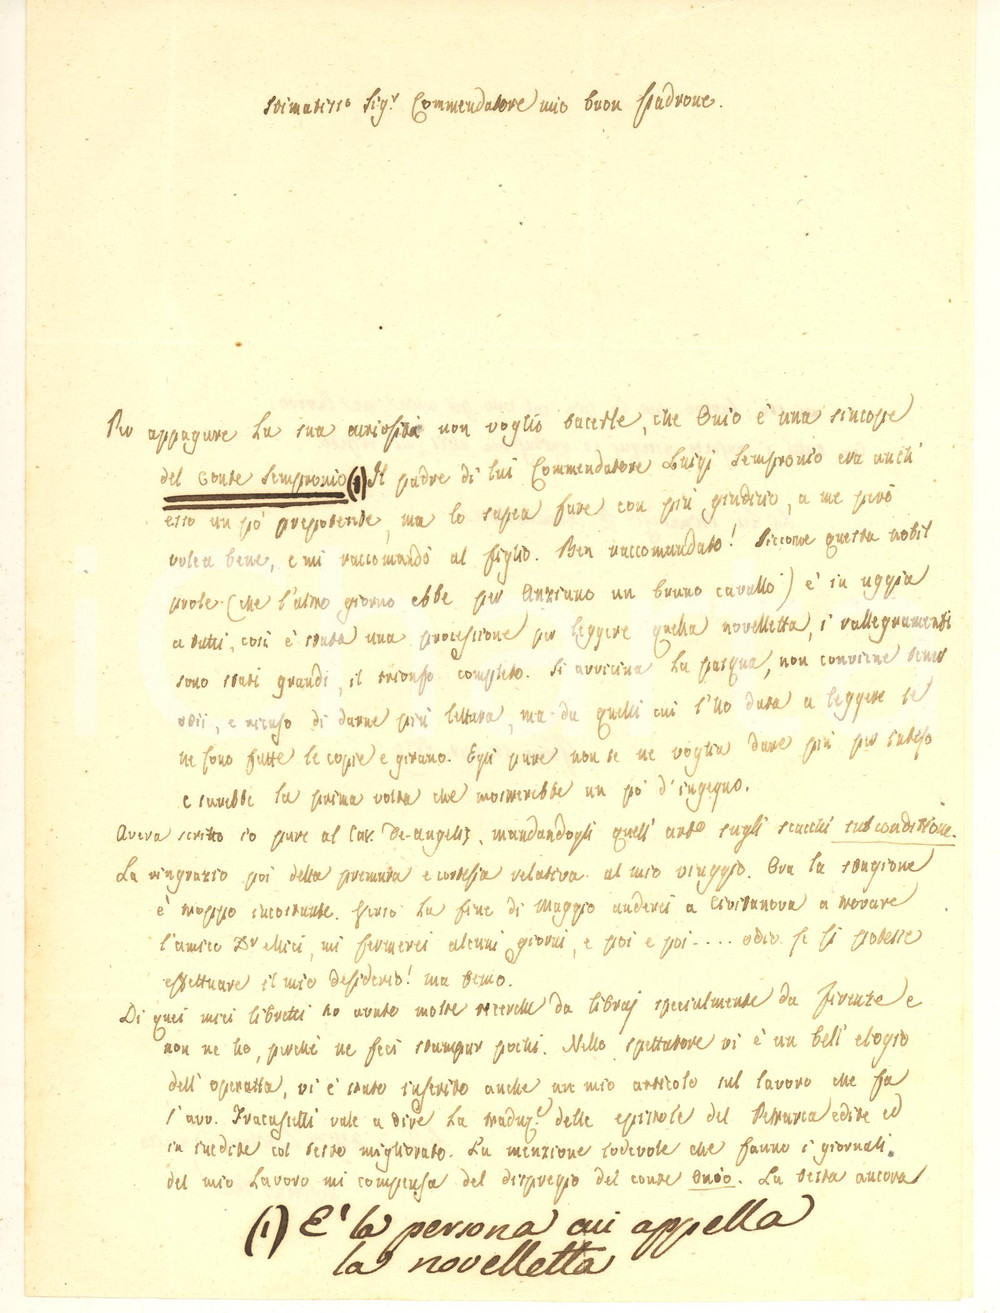 Stimatiss.o Sig.r Commendatore mio buon Padrone.
Per appagare la sua curiosità non voglio tacerle, che Onio è una sincope
del Conte Sempronio (1) Il padre di lui Commendatore Luigi Sempronio era anch'
esso un po' prepotente, ma lo sapea fare con più giudizio, a me però
volea bene, e mi raccomandò al figlio. Ben raccomandato! Siccome questa nobil
prole (che l'altro giorno ebbe per Anziano un bravo cavallo) è in uggia
a tutti, così è stata una processione per leggere quella novelletta, i rallegramenti
sono stati grandi, il trionfo completo. Si avvicina la pasqua, non conviene tener
odii, e ricuso di darne più lettura, ma da quelli cui l'ho data a leggere se
ne sono fatte le copie e girano. Egli pure non se ne voglia dare più per inteso
e sarebbe la prima volta che mostrerebbe un po' d'ingegno.
Aveva scritto io pure al Cav. De-Angelis, mandandogli quell' art.o sugli scacchi sub conditione.
La ringrazio poi della premura e cortesia relativa al mio viaggio. Ora la stagione
è troppo incostante. Verso la fine di Maggio anderei a Civitanova a trovare
l'amico Dr mi fermerei alcuni giorni, e poi e poi.... oh Dio se si potesse
effettuare il mio desiderio! ma temo.
Di quei miei libretti ho avuto molte ricerche da libraj specialmente da Firenze e
non ne ho, perché ne feci stampar pochi. Nello spettatore vi è un bell' elogio
dell' operetta, vi è stato inserito anche un mio articolo sul lavoro che fa
l'avv. Fracassetti vale a dire la traduz.e delle epistole del Petrarca edite ed
inedite col testo migliorato. La menzione lodevole che fanno i giornali
del mio lavoro mi compensa del dispregio del conte Onio. La testa ancora
(1) È la persona cui appella
la novelletta